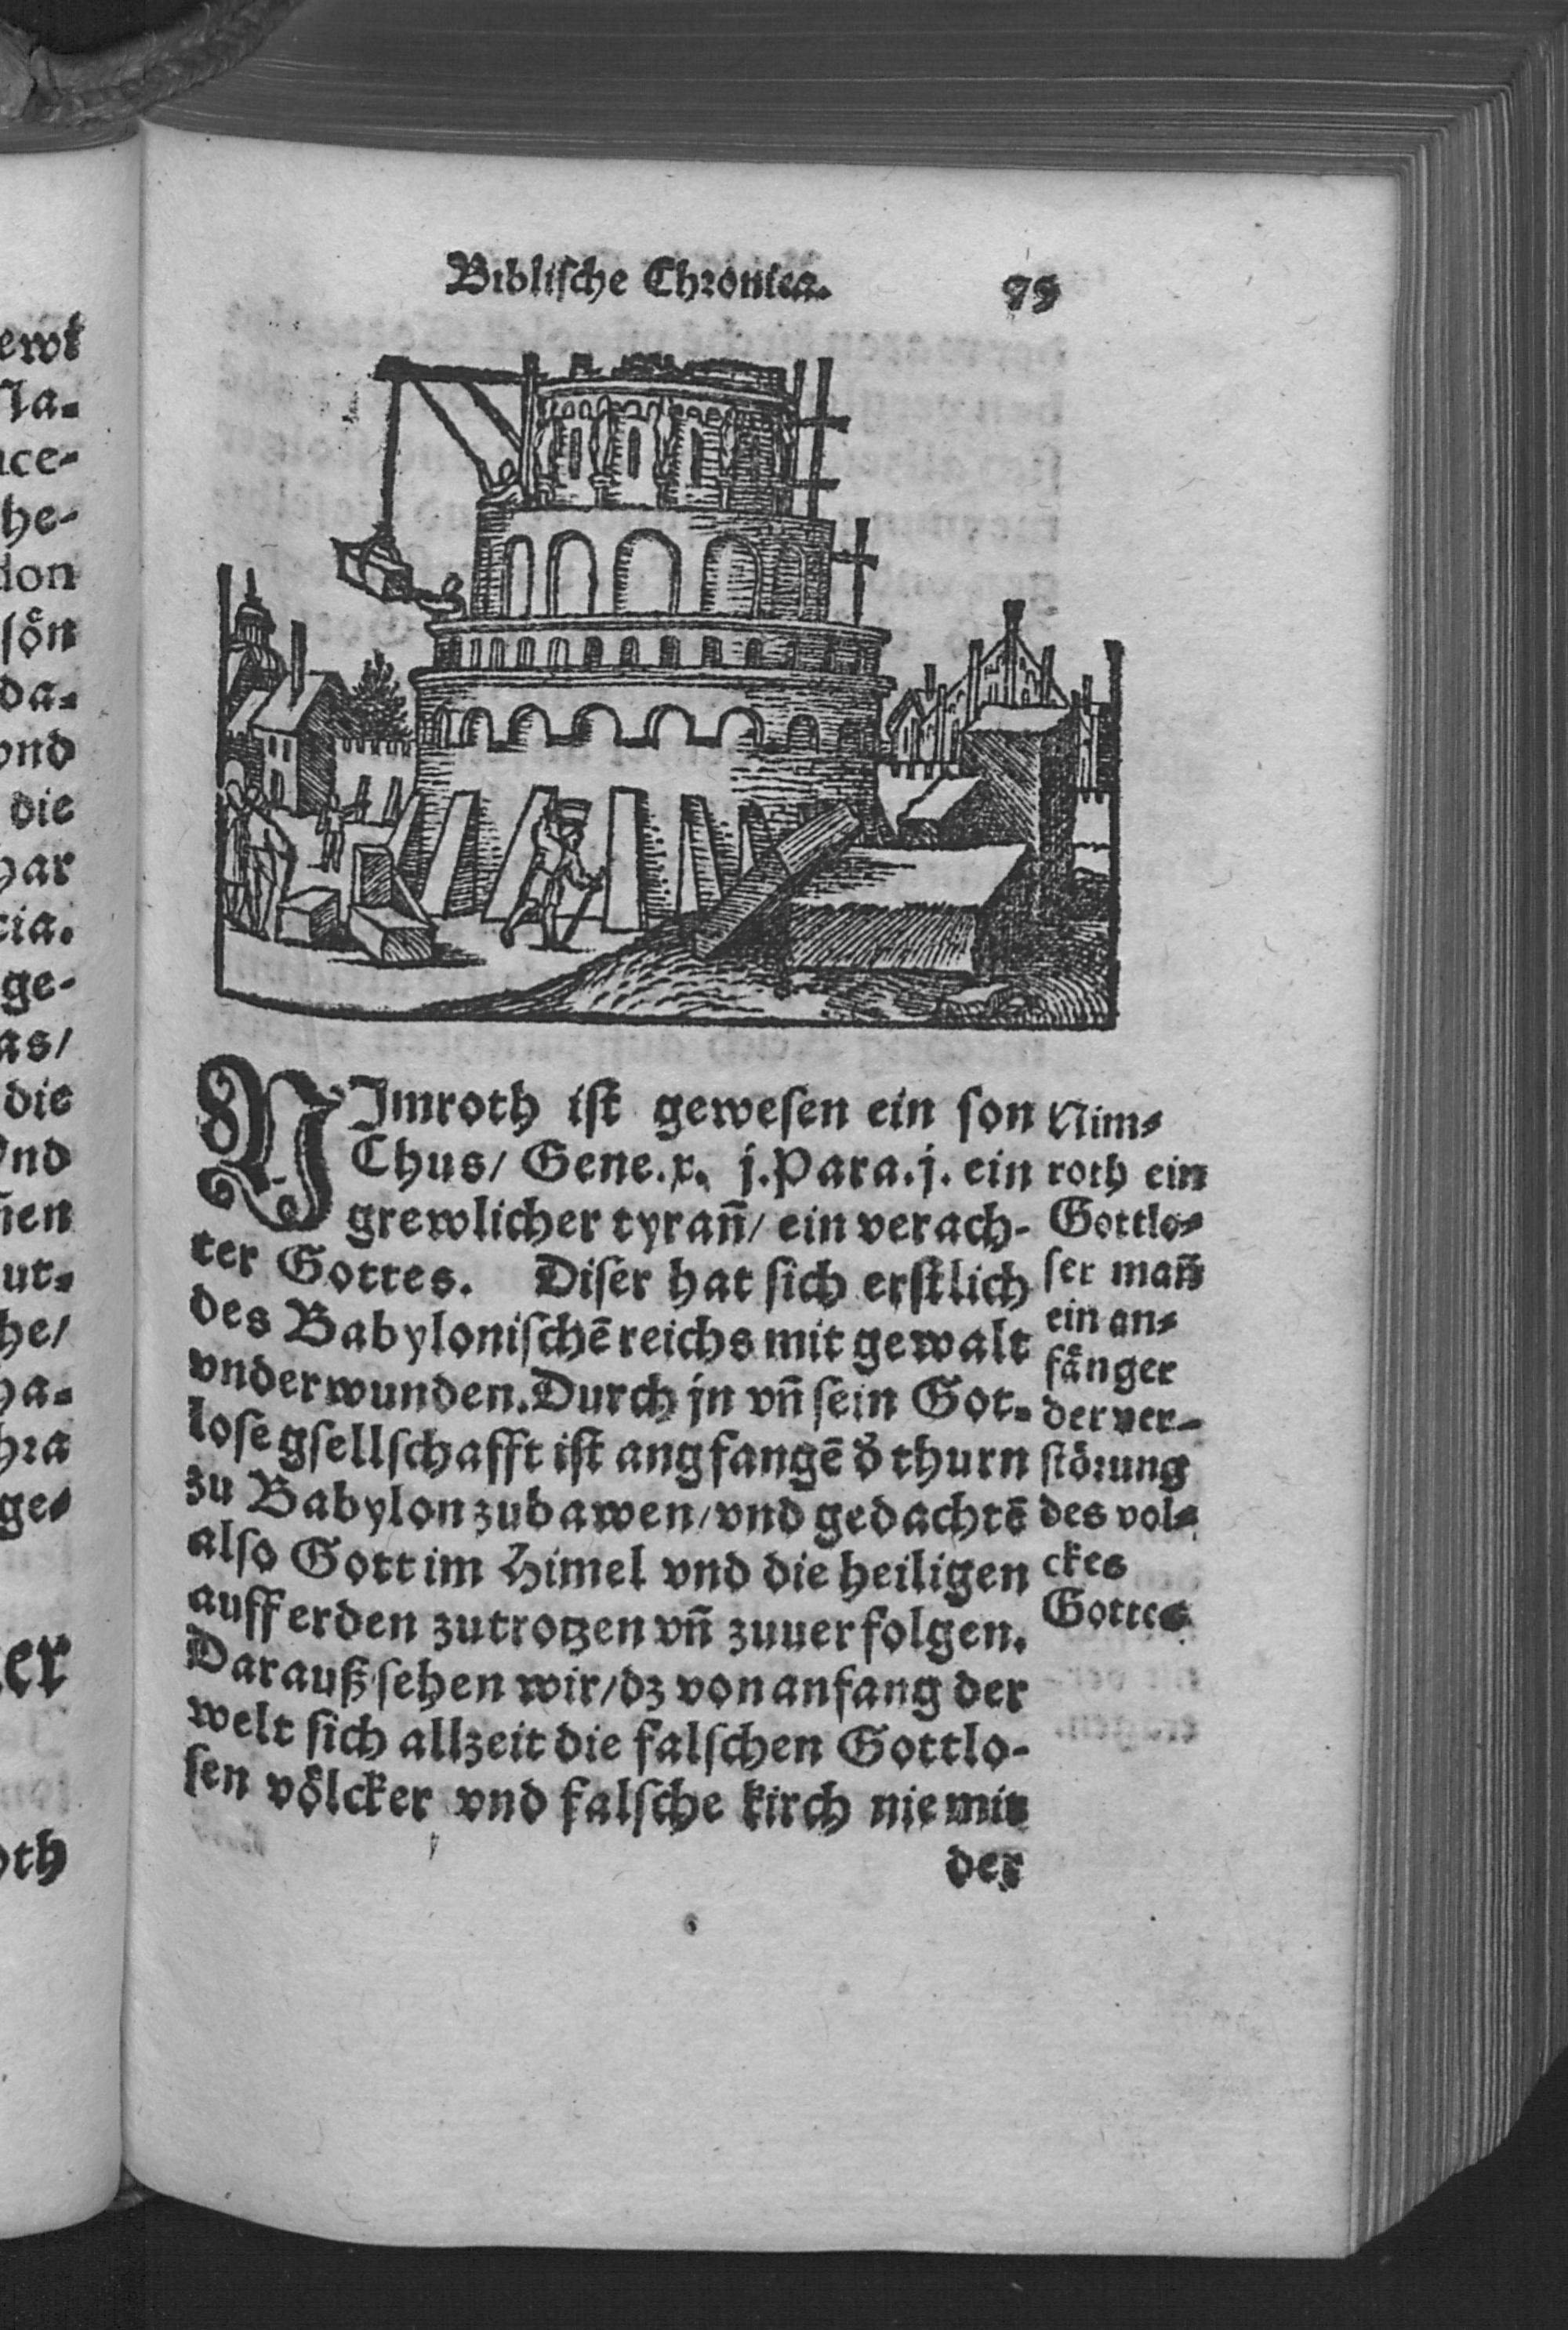 Biblische Chronica. 75
NImroth ist gewesen ein son
Chus/ Gene.x. j.Para.j. ein
grewlicher tyrañ/ ein verach-
ter Gottes. Diser hat sich erstlich
des Babylonischē reichs mit gewalt
vnderwunden. Durch jn vñ sein Got-
lose gsellschafft ist angfangē d' thurn
zu Babylon zubawen/ vnd gedachtē
also Gott im Himel vnd die heiligen
auff erden zutrotzen vñ zuuerfolgen.
Darauß sehen wir/ dz von anfang der
welt sich allzeit die falschen Gottlo-
sen voͤlcker vnd falsche kirch nie mit
der
Nim-
roth ein
Gottlo-
ser mañ
ein an-
faͤnger
der ver-
stoͤrung
des vol-
ckes
Gottes
ewt
Na-
ace-
he-
don
soͤn
da-
vnd
die
har
cia.
ge-
as/
die
Vnd
ñen
ut-
he/
ha-
hra
ge-
er
oth